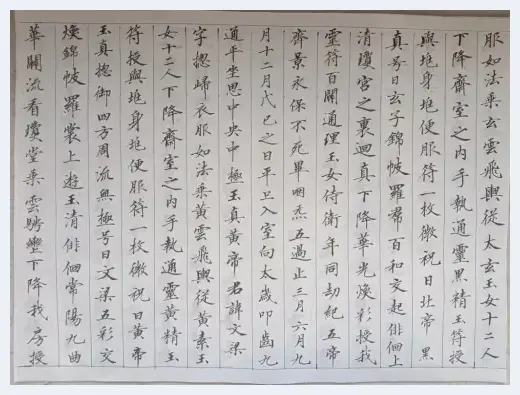 服如法乘玄雲飛輿從太玄玉女十二人
下降齋室之内手執通靈黑精玉符授
與堆身堆便服符一枚微祝曰北帝黑
真号曰玄子錦帔羅帬百和交起俳佪上
清瓊宮之裏迴真下降華光煥彩授我
靈符百關通理玉女侍衛年同劫紀五帝
齊景永保不死畢咽炁五過止三月六月九
月十二月戊己之日平旦入室向太歲叩齒九
通平坐思中央中極玉真黃帝君諱文梁
字揔歸衣服如法乘黃雲飛輿從黃素玉
女十二人下降齋室之内手執通靈黃精玉
符授與堆身堆便服符一枚微祝曰黃帝
玉真揔御四方周流無極号曰文梁五彩交
煥錦帔羅裳上遊玉清俳佪常陽九曲
華關流看瓊堂乘雲騁轡下降我房授